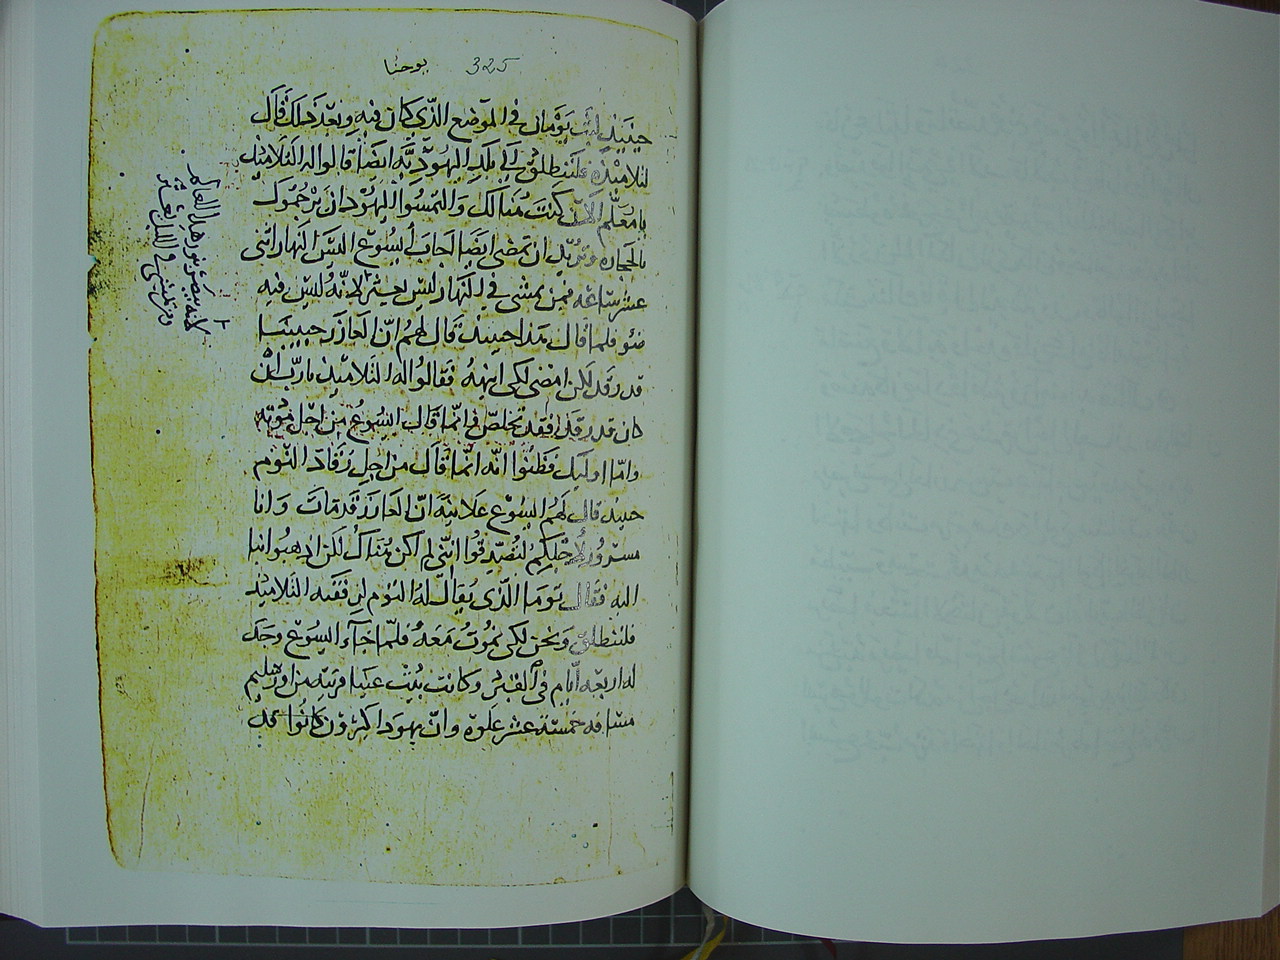 يوحنا 325
حينيذ لبث يومان في الموضع الذي كان فيه وبعد ذلك قال
لتلاميذه فلننطلق الي بلد اليهوديه ايضا قالوا له التلاميذ
يا معلم الان كنت هنالك والتمسوا اليهود ان يرجموك
بالحجاره وتريد ان تمضي ايضا اجاب يسوع اليس النهار اثني
عشر ساعه فمن يمشي في النهار ليس يعثر لانه ليس فيه
ضو فلما قال هذا حينيذ قال لهم ان العازر حبيبنا
قد رقد لكن امضي لكي انبهه فقالوا له التلاميذ يا رب ان
كان قد رقد فقد تخلص فانما قال اليسوع من اجل موته
واما اوليك فظنوا انه انما قال من اجل رقاد النوم
حينيذ قال لهم اليسوع علانيه ان العازر قد مات وانا
مسرور لاجلكم لتصدقوا انني لم اكن هناك لكن اذهبوا بنا
اليه فقال توما الذي يقال له التوم لرفقه التلاميذ
فلننطلق ونحن لكي نموت معه فلما جاء اليسوع وجد
له اربعه ايام في القبر وكانت بيت عنيا قريبه من اورشليم
مسافه خمسته عشر غلوه وان يهودا كثرون كانوا قد
لانه يبصر نور هذا العالم
ومن يمشي في الليل يعثر